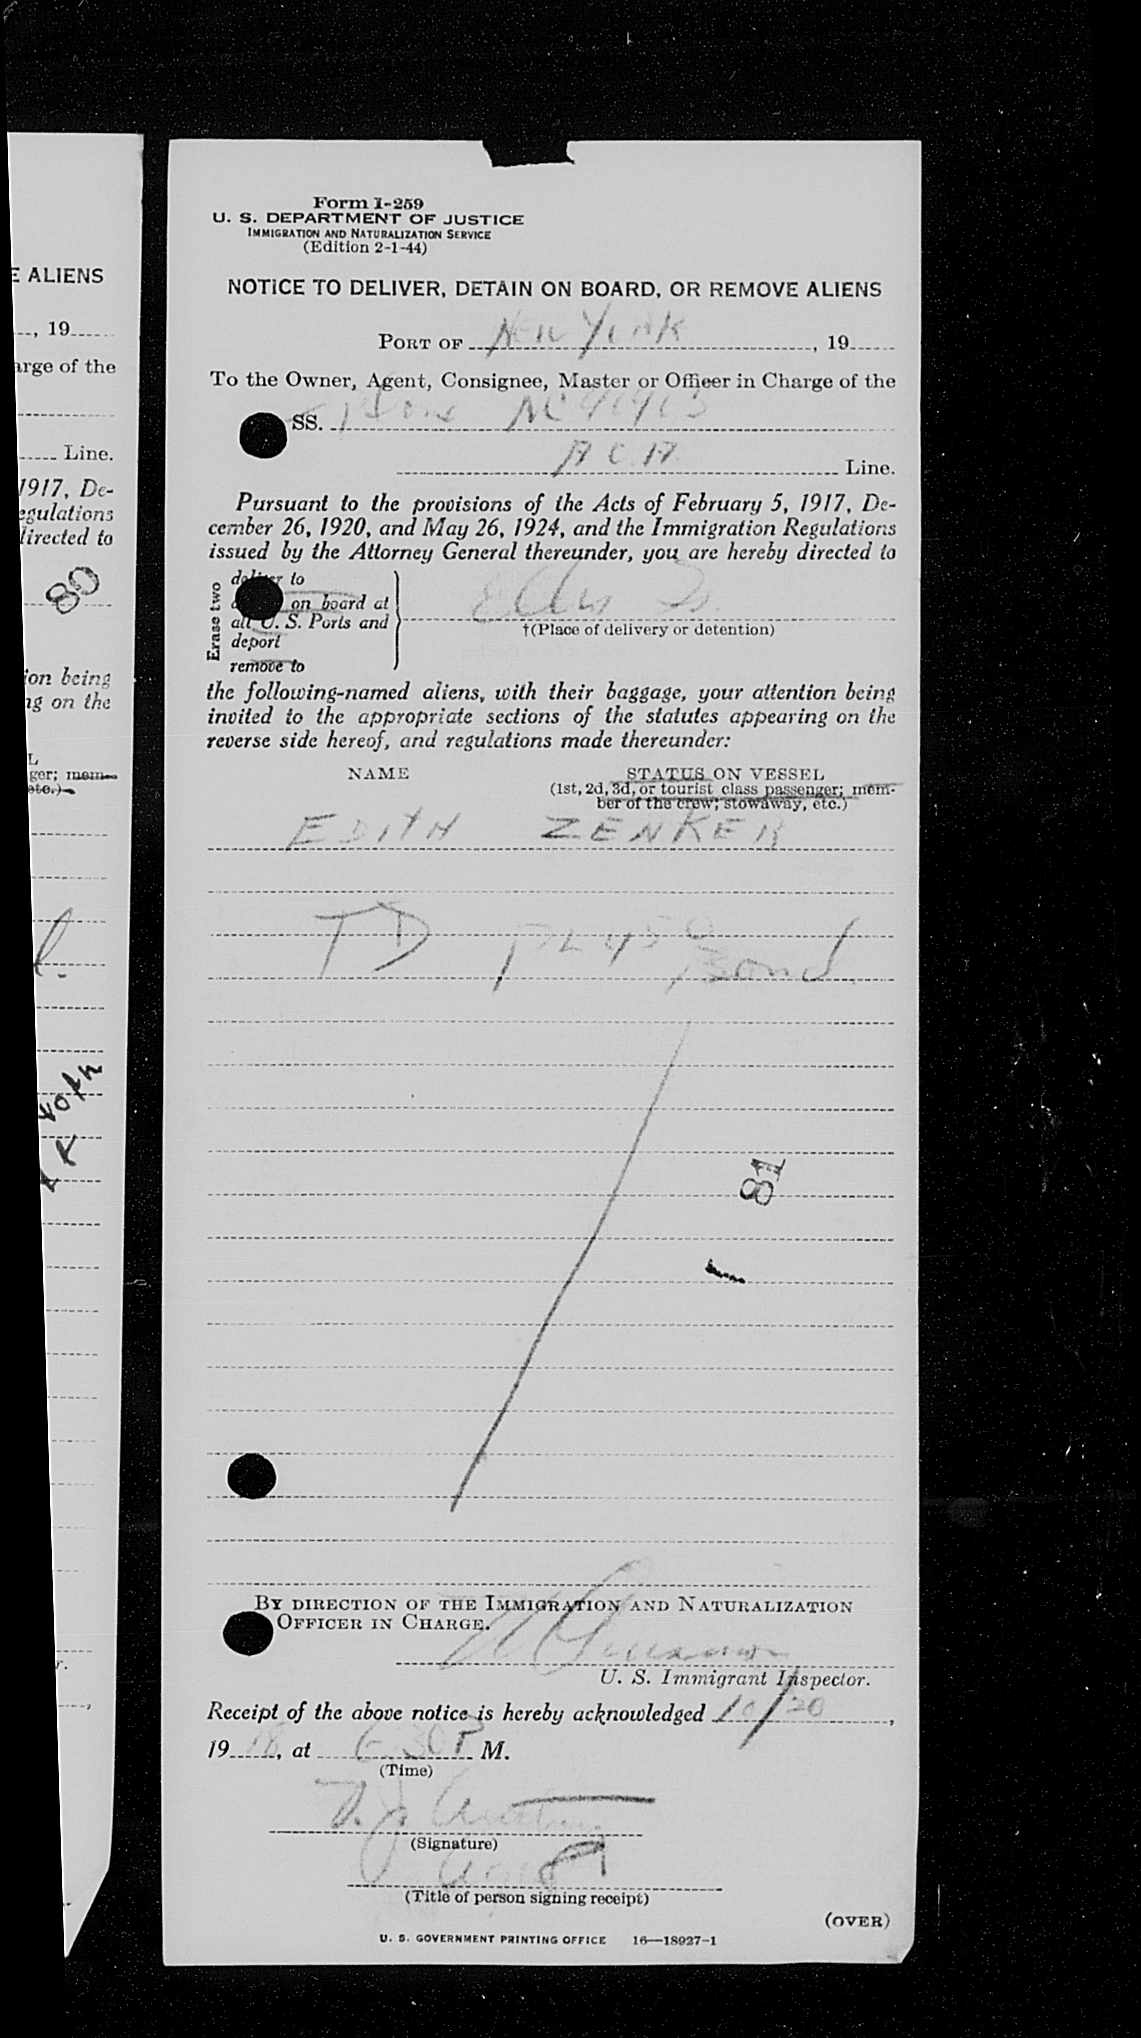 E ALIENS
, 19
arge of the
Line.
1917, De-
egulations
directed to
80
ion being
ng on the
L
ger; mem-
etc.)
r.
Form I-259
U. S. DEPARTMENT OF JUSTICE
IMMIGRATION AND NATURALIZATION SERVICE
(Edition 2-1-44)
NOTICE TO DELIVER, DETAIN ON BOARD, OR REMOVE ALIENS
PORT OF New York, 19
To the Owner, Agent, Consignee, Master or Officer in Charge of the
SS.
A C A Line.
Pursuant to the provisions of the Acts of February 5, 1917, De-
cember 26, 1920, and May 26, 1924, and the Immigration Regulations
issued by the Attorney General thereunder, you are hereby directed to
Erase two
deliver to
on board at
all U. S. Ports and
deport
remove to
Ellis Is.
†(Place of delivery or detention)
the following-named aliens, with their baggage, your attention being
invited to the appropriate sections of the statutes appearing on the
reverse side hereof, and regulations made thereunder:
NAME STATUS ON VESSEL
(1st, 2d, 3d, or tourist class passenger; mem-
ber of the crew; stowaway, etc.)
EDITH ZENKER
TD
Bond
81
BY DIRECTION OF THE IMMIGRATION AND NATURALIZATION
OFFICER IN CHARGE.
U. S. Immigrant Inspector.
Receipt of the above notice is hereby acknowledged 10/20,
19, at 6:30 P M.
(Time)
(Signature)
Agent
(Title of person signing receipt)
(OVER)
U. S. GOVERNMENT PRINTING OFFICE 16—18927-1